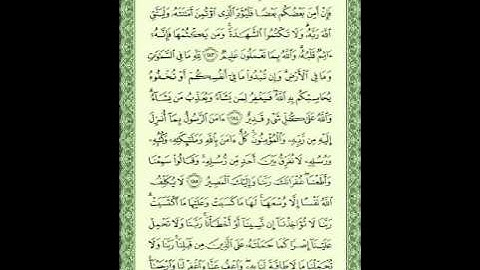 فَإِنْ أَمِنَ بَعْضُكُم بَعْضًا فَلْيُؤَدِّ ٱلَّذِى ٱؤْتُمِنَ أَمَـٰنَتَهُۥ وَلْيَتَّقِ
ٱللَّهَ رَبَّهُۥ ۗ وَلَا تَكْتُمُوا۟ ٱلشَّهَـٰدَةَ ۚ وَمَن يَكْتُمْهَا فَإِنَّهُۥٓ
ءَاثِمٌ قَلْبُهُۥ ۗ وَٱللَّهُ بِمَا تَعْمَلُونَ عَلِيمٌ ٢٨٣ لِّلَّهِ مَا فِى ٱلسَّمَـٰوَٰتِ
وَمَا فِى ٱلْأَرْضِ ۗ وَإِن تُبْدُوا۟ مَا فِىٓ أَنفُسِكُمْ أَوْ تُخْفُوهُ
يُحَاسِبْكُم بِهِ ٱللَّهُ ۖ فَيَغْفِرُ لِمَن يَشَآءُ وَيُعَذِّبُ مَن يَشَآءُ ۗ
وَٱللَّهُ عَلَىٰ كُلِّ شَىْءٍ قَدِيرٌ ٢٨٤ ءَامَنَ ٱلرَّسُولُ بِمَآ أُنزِلَ
إِلَيْهِ مِن رَّبِّهِۦ وَٱلْمُؤْمِنُونَ ۚ كُلٌّ ءَامَنَ بِٱللَّهِ وَمَلَـٰٓئِكَتِهِۦ وَكُتُبِهِۦ
وَرُسُلِهِۦ لَا نُفَرِّقُ بَيْنَ أَحَدٍ مِّن رُّسُلِهِۦ ۚ وَقَالُوا۟ سَمِعْنَا
وَأَطَعْنَا ۖ غُفْرَانَكَ رَبَّنَا وَإِلَيْكَ ٱلْمَصِيرُ ٢٨٥ لَا يُكَلِّفُ
ٱللَّهُ نَفْسًا إِلَّا وُسْعَهَا ۚ لَهَا مَا كَسَبَتْ وَعَلَيْهَا مَا ٱكْتَسَبَتْ ۗ
رَبَّنَا لَا تُؤَاخِذْنَآ إِن نَّسِينَآ أَوْ أَخْطَأْنَا ۚ رَبَّنَا وَلَا تَحْمِلْ
عَلَيْنَآ إِصْرًا كَمَا حَمَلْتَهُۥ عَلَى ٱلَّذِينَ مِن قَبْلِنَا ۚ رَبَّنَا وَلَا
تُحَمِّلْنَا مَا لَا طَاقَةَ لَنَا بِهِۦ ۖ وَٱعْفُ عَنَّا وَٱغْفِرْ لَنَا وَٱرْحَمْنَآ ۚ